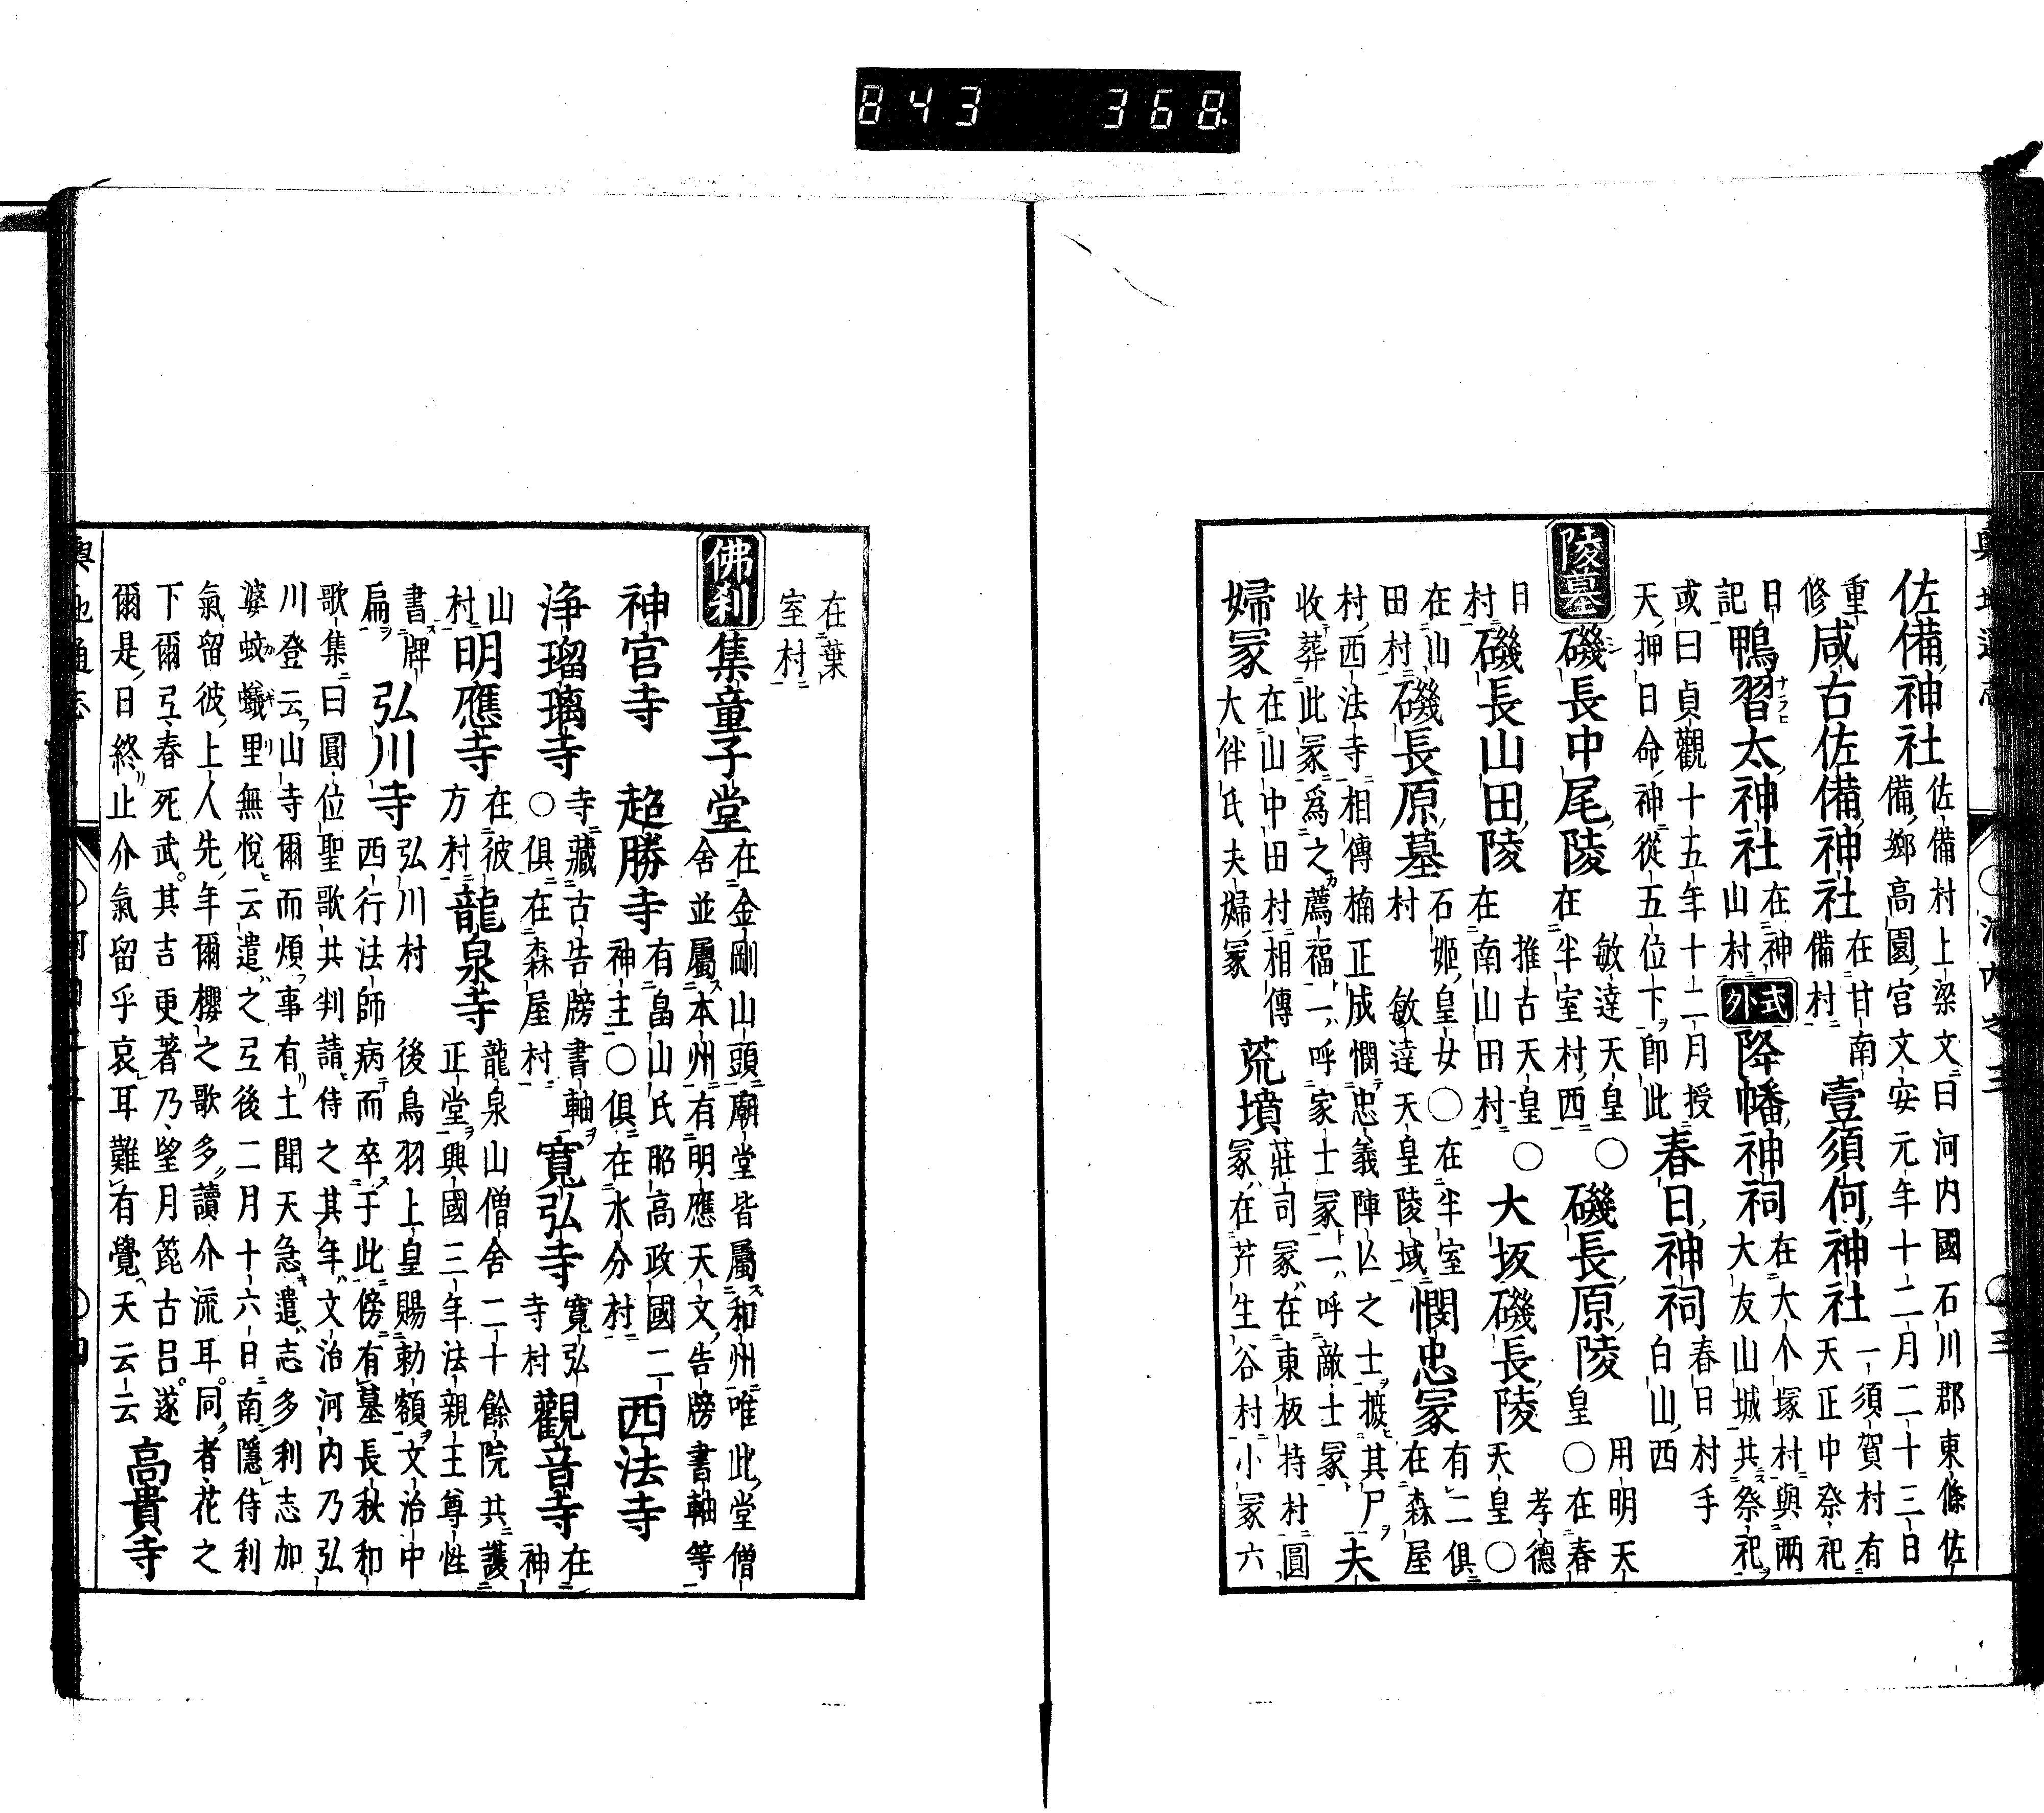 佐備神社
佐備村上梁文曰河内國石川郡東條佐
備鄉高園宮文安元年十二月二十三日
重
修
咸古佐備神社
在甘南
備村
壹須何神社
一須賀村有
天正中祭祀
日
記
鴨習太神社
在神
山村
式外
降幡神祠
在大个塚村與兩
大友山城共祭祀
或曰貞觀十五年十二月授
天押日命神從五位下即此
春日神祠
春日村手
白山西
陵墓
磯長中尾陵
敏達天皇〇
在半室村西
磯長原陵
用明天
皇〇在春
日
村
磯長山田陵
推古天皇〇
在南山田村
大坂磯長陵
孝德
天皇〇
在山
田村
磯長原墓
石姬皇女〇在半室
村 敏達天皇陵域
憫忠冢
有二俱
在森屋
村西法寺相傳楠正成憫忠義陣亾之士摭其尸
收葬此冢爲之薦福一呼家士冢一呼敵士冢
夫
婦冢
在山中田村相傳
大伴氏夫婦冢
荒墳
莊司冢在東板持村圓
冢在芹生谷村小冢六
在葉
室村
佛刹
集童子堂
在金剛山頭廟堂皆屬和州唯此堂僧
舍並屬本州有明應天文告牓書軸等
神宮寺
超勝寺
有畠山氏昭高政國二
神主〇俱在水分村
西法寺
浄瑠璃寺
寺藏古告牓書軸
〇俱在森屋村
寬弘寺
寬弘
寺村
觀音寺
在
神
山
村
明應寺
在彼
方村
龍泉寺
龍泉山僧舍二十餘院共護
正堂興國三年法親王尊性
書牌
扁
弘川寺
弘川村 後鳥羽上皇賜勅額文治中
西行法師病而卒于此傍有墓長秋和
歌集曰圓位聖歌共判請侍之其年文治河内乃弘
川登云山寺爾而煩事有土聞天急遣志多利志加
婆蚊蟻里無悅云遣之弖後二月十六日南隱侍利
氣留彼上人先年爾櫻之歌多讀介流耳同者花之
下爾弖春死武其吉更著乃望月箆古呂遂
爾是日終止介氣留乎哀耳難有覺天云云
高貴寺
843 368